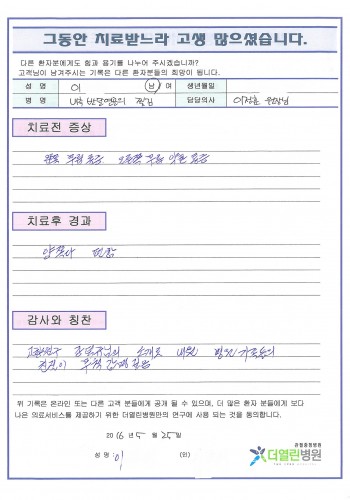 그동안 치료받느라 고생 많으셨습니다.
다른 환자분에게도 힘과 용기를 나누어 주시겠습니까?
고객님이 남겨주시는 기록은 다른 환자분들의 희망이 됩니다.
성 명 이 남/여 생년월일
병 명 내측 반월연골의 찢김 담당의사 이정훈 원장님
치료전 증상
왼쪽 무릎 통증 오른쪽 무릎 약한 통증
치료후 경과
양쪽다 편함
감사와 칭찬
소개로
위 기록은 온라인 또는 다른 고객 분들에게 공개 될 수 있으며, 더 많은 환자 분들에게 보다
나은 의료서비스를 제공하기 위한 더열린병원만의 연구에 사용 되는 것을 동의합니다.
2016 년 5 월 25 일
성 명 : 이 (인)
관절중점병원
더열린병원